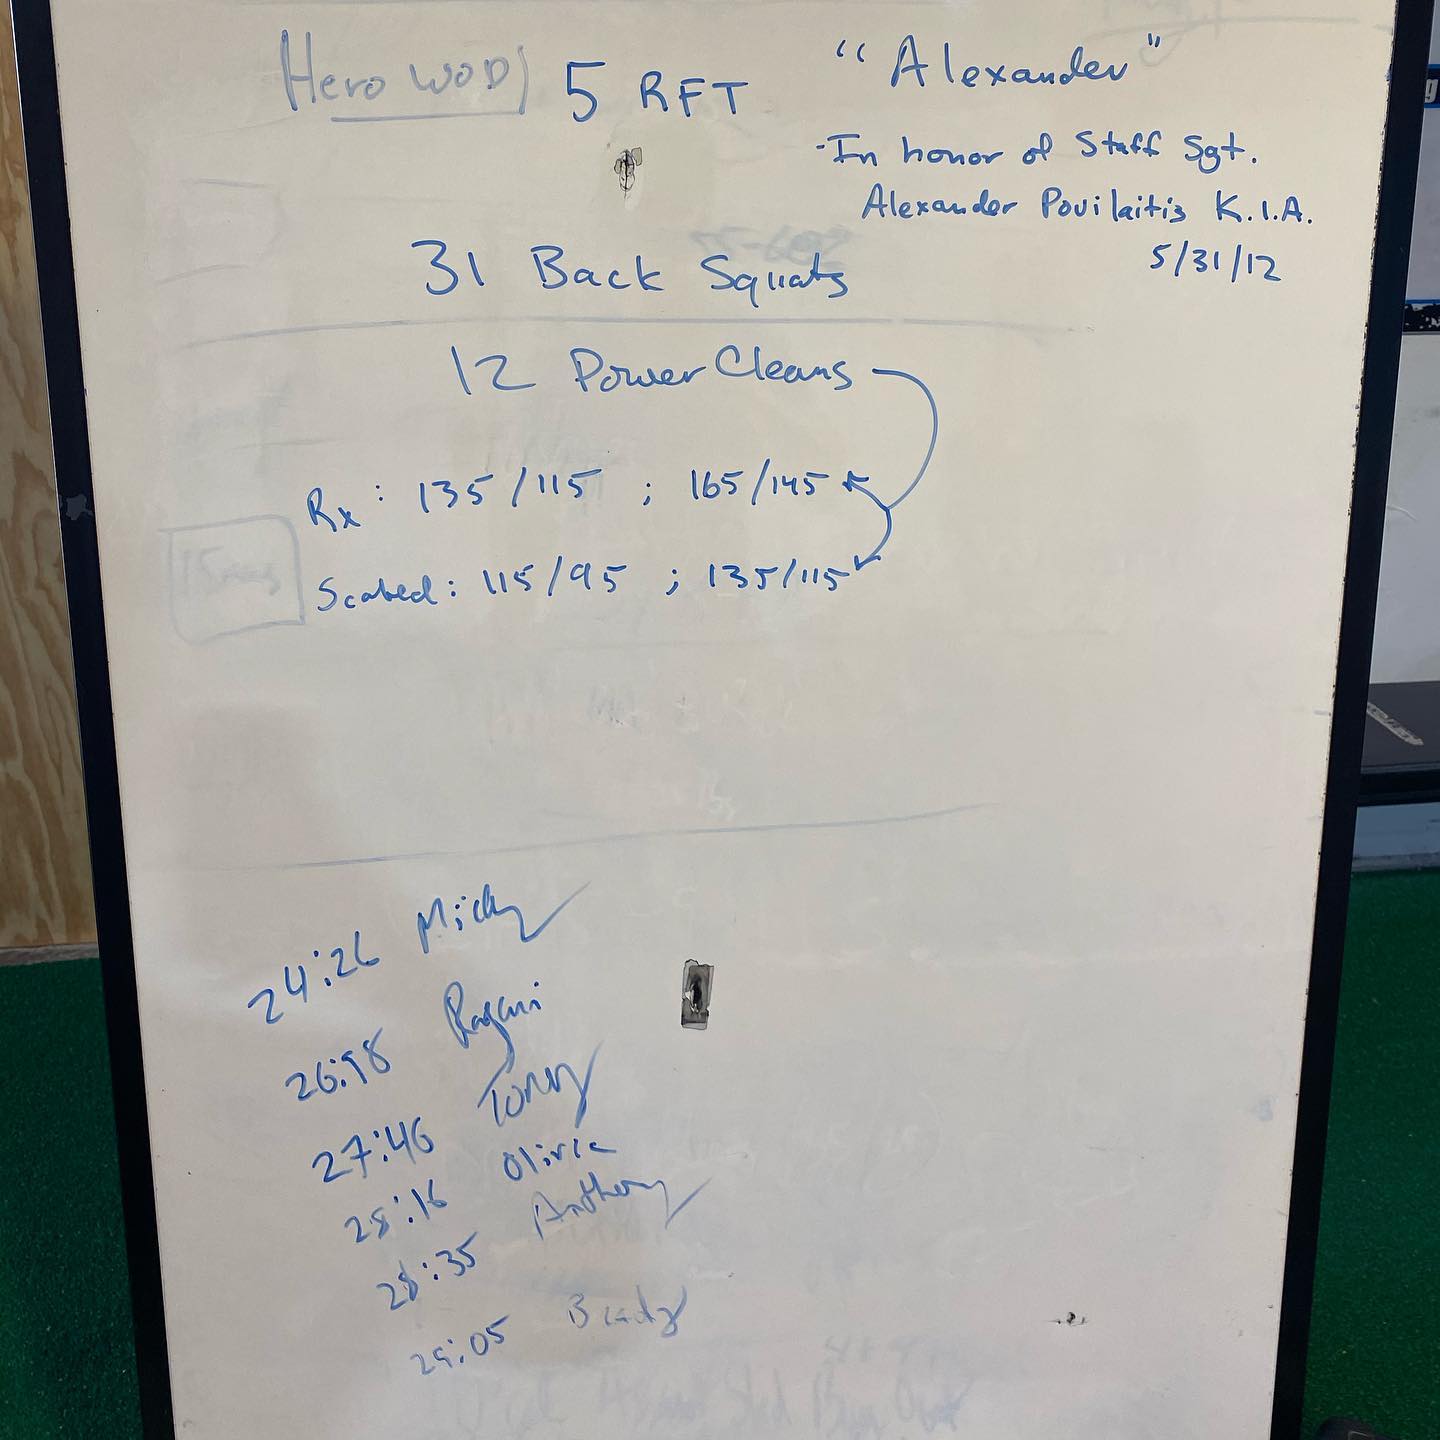 Hero WOD
5 RFT
"Alexander"
-In honor of Staff Sgt.
Alexander Povilaitis K.I.A.
5/31/12
31 Back Squats
12 Power Cleans
Rx: 135/115 ; 165/145
Scaled: 115/95 ; 135/115
24:26 Micky
27:46 Tony
28:16 Olivia
28:35 Anthony
29:05